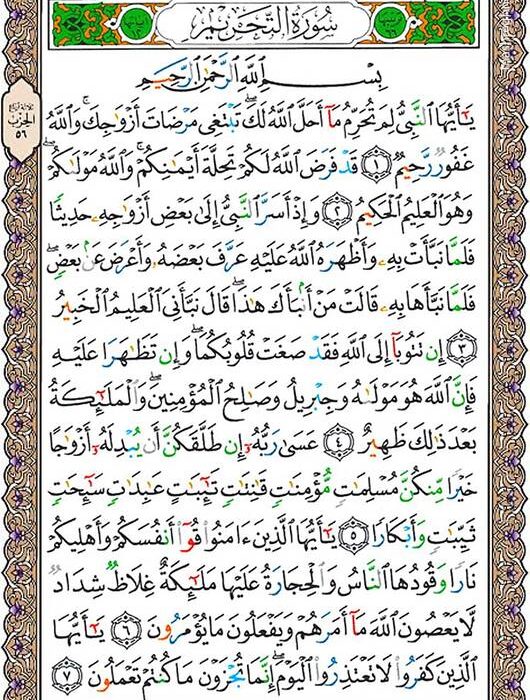 سُورَةُ التَّحْرِيمِ
بِسْمِ ٱللَّهِ ٱلرَّحْمَٰنِ ٱلرَّحِيمِ
يَٰٓأَيُّهَا ٱلنَّبِىُّ لِمَ تُحَرِّمُ مَآ أَحَلَّ ٱللَّهُ لَكَ ۖ تَبْتَغِى مَرْضَاتَ أَزْوَٰجِكَ ۚ وَٱللَّهُ
غَفُورٌ رَّحِيمٌ ١ قَدْ فَرَضَ ٱللَّهُ لَكُمْ تَحِلَّةَ أَيْمَٰنِكُمْ ۚ وَٱللَّهُ مَوْلَىٰكُمْ ۖ
وَهُوَ ٱلْعَلِيمُ ٱلْحَكِيمُ ٢ وَإِذْ أَسَرَّ ٱلنَّبِىُّ إِلَىٰ بَعْضِ أَزْوَٰجِهِۦ حَدِيثًا
فَلَمَّا نَبَّأَتْ بِهِۦ وَأَظْهَرَهُ ٱللَّهُ عَلَيْهِ عَرَّفَ بَعْضَهُۥ وَأَعْرَضَ عَنۢ بَعْضٍ ۖ
فَلَمَّا نَبَّأَهَا بِهِۦ قَالَتْ مَنْ أَنۢبَأَكَ هَٰذَا ۖ قَالَ نَبَّأَنِىَ ٱلْعَلِيمُ ٱلْخَبِيرُ
٣ إِن تَتُوبَآ إِلَى ٱللَّهِ فَقَدْ صَغَتْ قُلُوبُكُمَا ۖ وَإِن تَظَٰهَرَا عَلَيْهِ
فَإِنَّ ٱللَّهَ هُوَ مَوْلَىٰهُ وَجِبْرِيلُ وَصَٰلِحُ ٱلْمُؤْمِنِينَ ۖ وَٱلْمَلَٰٓئِكَةُ
بَعْدَ ذَٰلِكَ ظَهِيرٌ ٤ عَسَىٰ رَبُّهُۥٓ إِن طَلَّقَكُنَّ أَن يُبْدِلَهُۥٓ أَزْوَٰجًا
خَيْرًا مِّنكُنَّ مُسْلِمَٰتٍ مُّؤْمِنَٰتٍ قَٰنِتَٰتٍ تَٰٓئِبَٰتٍ عَٰبِدَٰتٍ سَٰٓئِحَٰتٍ
ثَيِّبَٰتٍ وَأَبْكَارًا ٥ يَٰٓأَيُّهَا ٱلَّذِينَ ءَامَنُوا۟ قُوٓا۟ أَنفُسَكُمْ وَأَهْلِيكُمْ
نَارًا وَقُودُهَا ٱلنَّاسُ وَٱلْحِجَارَةُ عَلَيْهَا مَلَٰٓئِكَةٌ غِلَاظٌ شِدَادٌ
لَّا يَعْصُونَ ٱللَّهَ مَآ أَمَرَهُمْ وَيَفْعَلُونَ مَا يُؤْمَرُونَ ٦ يَٰٓأَيُّهَا
ٱلَّذِينَ كَفَرُوا۟ لَا تَعْتَذِرُوا۟ ٱلْيَوْمَ ۖ إِنَّمَا تُجْزَوْنَ مَا كُنتُمْ تَعْمَلُونَ ٧
الحزب
٥٦